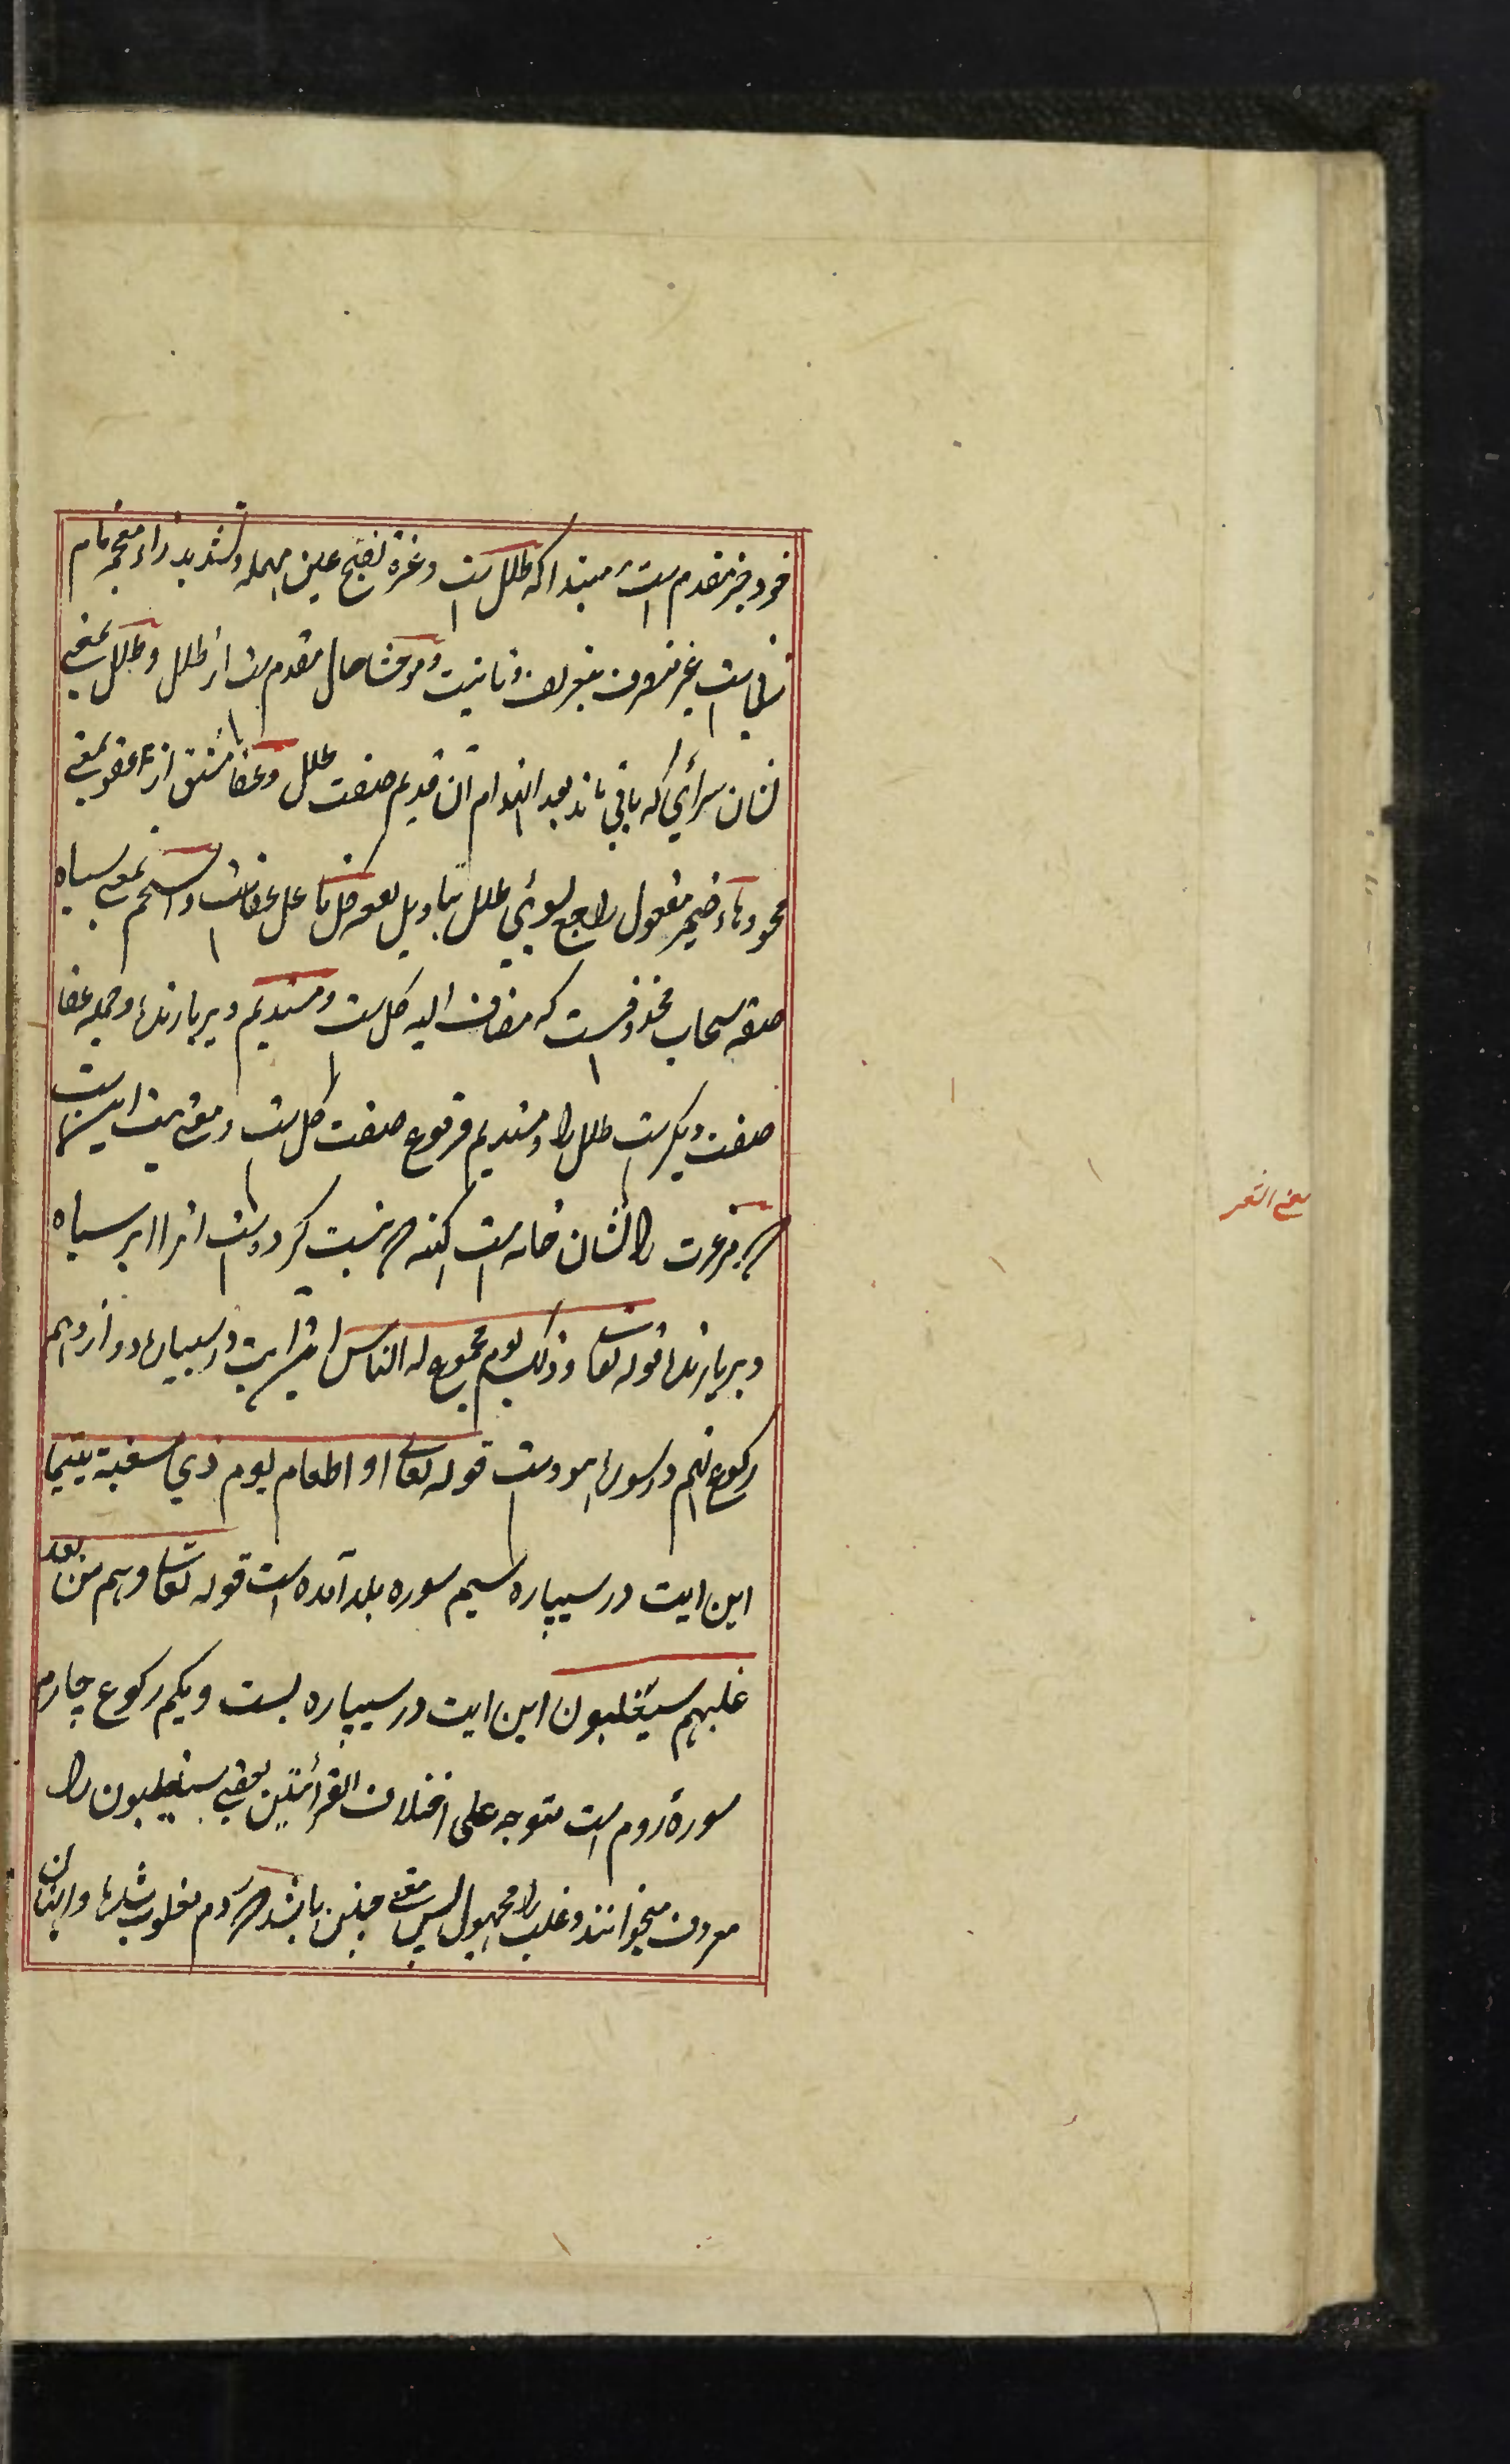 خود خبر مقدم است مبتدا که طلل است و عزة بفتح عین مهمله و تشدید زاء معجمه نام
زنی است غیر منصرف بتعریف و تانیث و موحشا حال مقدم ست از طلل و طلل بمعنی
نشان سرائی که باقی ماند بعد انهدام آن قدیم صفت طلل و عفا مشتق از عفو بمعنی
محو و هاء ضمیر مفعول راجع بسوئی طلل بتاویل کل فاعل عفاست و اسحم بمعنی سیاه
صفة سحاب محذوفست که مضاف الیه کل ست و مستدیم دیر بارنده و جمله عفا
صفت دیگرست طلل را و مستدیم مرفوع صفت کل ست و معنی بیت این ست
مر عزت را نشان خانه است کهنه نیست کرده است انرا ابر سیاه
دیر بارنده قوله تعالی و ذلک یوم مجموع له الناس این ایت در سیپاره دوازدهم
رکوع نهم در سوره هود ست قوله تعالی او اطعام یوم ذی مسغبة یتیما
این ایت در سیپاره سیم سوره بلد آمده است قوله تعالی و هم من بعد
غلبهم سیغلبون این ایت در سیپاره بست و یکم رکوع چارم
سورۀ روم است متوجه علی اختلاف القرائتین یعنی سیغلبون را
معروف میخوانند و غلبت را مجهول پس معنی چنین باشد روم مغلوب شده و ایشان
یعنی الشعر